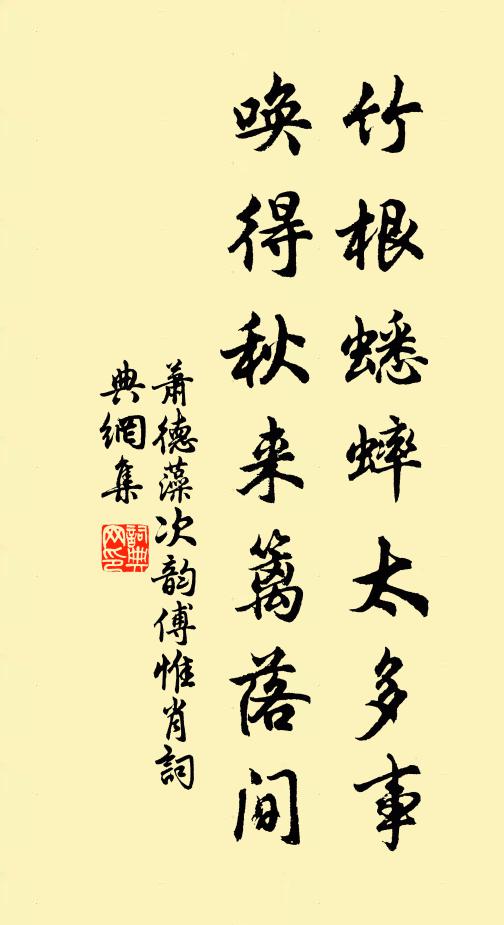 竹根蟋蟀太多事
唤得秋来篱落间
萧德藻次韵傅惟肖词
典网集
词典网印